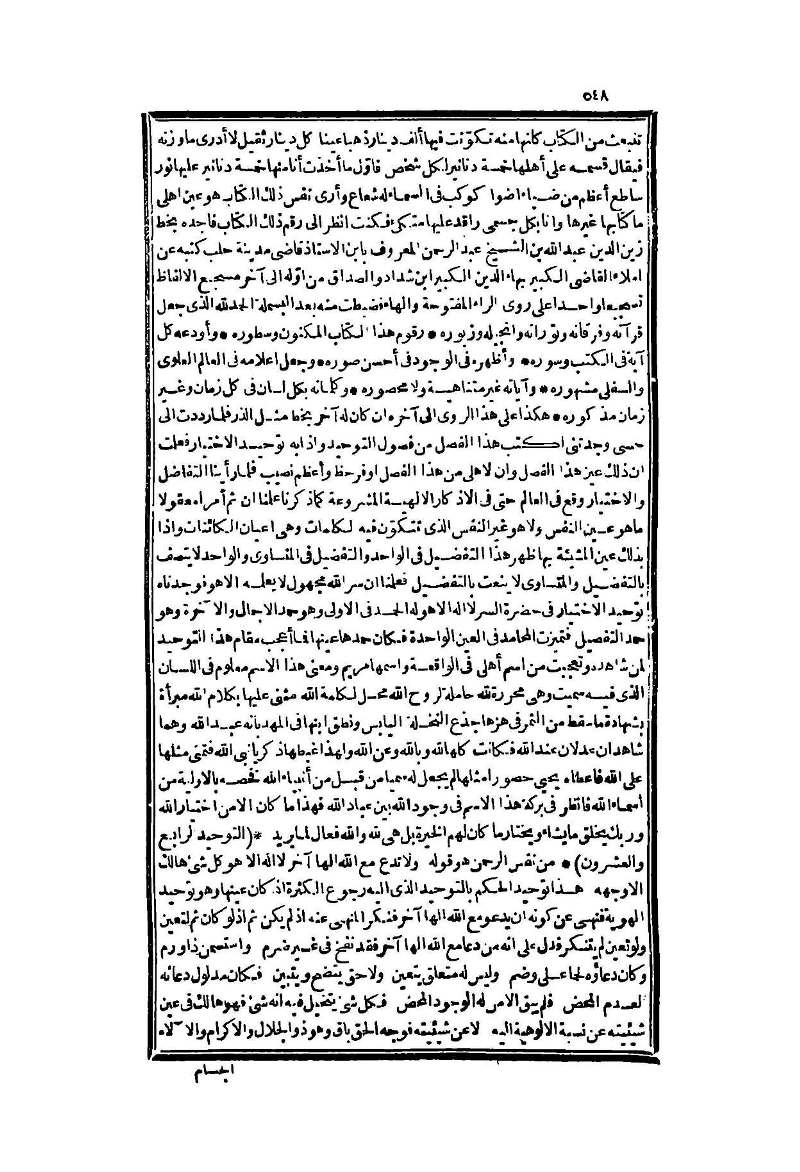 ٥٤٨
تنبعث من الكتاب كانها منه تكونت فيها ألف دينار ذهبا عينا كل دينار ثقيل لا أدرى ما وزنه
فيقال قسمه على أهلها خمسة دنانير لكل شخص فاقول ما أخذت أنا منها خمسة دنانير عليها نور
ساطع أعظم من ضياء اضوا كوكب فى السماء له شعاع وأرى نفس ذلك الكتاب هو عين اهلى
ما كتابها غيرها وانا بكل جسمى راقد عليها متكئ فكنت انظر الى رقم ذلك الكتاب فاجده بخط
زين الدين عبد الله بن الشيخ عبد الرحمن المعروف بابن الاستاذ قاضى مدينة حلب كتبه عن
املاء القاضى الكبير بهاء الدين الكبير ابن شداد والصداق من اوّله الى آخر مسجع الالفاظ
تسجيعا واحدا على روى الراء المفتوحة والهاء فضبطت منه بعد البسملة الحمد لله الذى جعل
قرآنه وفرقانه وتوراته وانجيله وزبوره * رقوم هذا الكتاب المكنون وسطوره * وأودعه كل
آية فى الكتب وسوره * وأظهره فى الوجود فى أحسن صوره * وجعل اعلامه فى العالم العلوى
والسفلى مشهوره * وآياته غير متناهية ولا محصوره * وكلماته بكل لسان فى كل زمان وغير
زمان مذكوره * هكذا على هذا الروى الى آخره ان كان له آخر بخط مثل الذر فلما رددت الى
حسى وجدتنى اكتب هذا الفصل من فصول التوحيد واذا به توحيد الاختيار فعلمت
ان ذلك عين هذا الفصل وان لاهلى من هذا الفصل اوفر حظ وأعظم نصيب فلما رأينا التفاضل
والاختيار وقع فى العالم حتى فى الاذكار الالهية المشروعة كما ذكرنا علمنا ان ثم أمرا معقولا
ما هو عين النفس ولا هو غير النفس الذى تتكوّن فيه الكلمات وهى اعيان الكائنات واذا
بذلك عين المشيئة بها ظهر هذا التفضيل فى الواحد والتفضيل فى المتساوى والواحد لا يتصف
بالتفضيل والمتساوى لا ينعت بالتفضيل فعلمنا ان سر الله مجهول لا يعلمه الا هو فوجدناه
توحيد الاختيار فى حضرة السر لا اله الا هو له الحمد فى الاولى وهو حمد الاجمال والآخرة وهو
حمد التفصيل فتميزت المحامد فى العين الواحدة فكان حمدها عينها فما أعجب مقام هذا التوحيد
لمن شاهده وتعجبت من اسم أهلى فى الواقعة واسمها مريم ومعنى هذا الاسم معلوم فى اللسان
الذى فيه سميت وهى محررة لله حاملة لروح الله محل لكلمة الله مثنى عليها بكلام الله مبرأة
بشهادة ما سقط من التمر فى هزها جذع النخلة اليابس ونطق ابنها فى المهد بانه عبد الله وهما
شاهدان عدلان عند الله فكانت كلها لله وبالله وعن الله ولهذا غبطها زكريا نبى الله فتمنى مثلها
على الله فاعطاه يحيى حصورا مثلها لم يجعل له سميا من قبل من أنبياء الله فخصه بالاولية من
أسماء الله فانظر فى بركة هذا الاسم فى وجود الله بين عباد الله فهذا ما كان الا من اختيار الله
وربك يخلق ما يشاء ويختار ما كان لهم الخيرة بل هى لله والله فعال لما يريد *(التوحيد الرابع
والعشرون)* من نفس الرحمن هو قوله ولا تدع مع الله الها آخر لا اله الا هو كل شئ هالك
الا وجهه هذا توحيد الحكم بالتوحيد الذى اليه رجوع الكثرة اذ كان عينها وهو توحيد
الهوية فنهى عن كونه ان يدعو مع الله الها آخر فنكر المنهى عنه اذ لم يكن ثم اذ لو كان ثم لتعين
ولو تعين لم يتنكر فدل على انه من دعا مع الله الها آخر فقد نفخ فى غير ضرم واستسمن ذا ورم
وكان دعاؤه لحما على وضم وليس له متعلق يتعين ولا حق يتضح ويتبين فكان مدلول دعائه
العدم المحض فلم يبق الا من له الوجود المحض فكل شئ يتخيل فيه انه شئ فهو هالك فى عين
شيئيته عن نسبة الالوهية اليه لا عن شيئيته فوجه الحق باق وهو ذو الجلال والاكرام والآلاء
الجسام